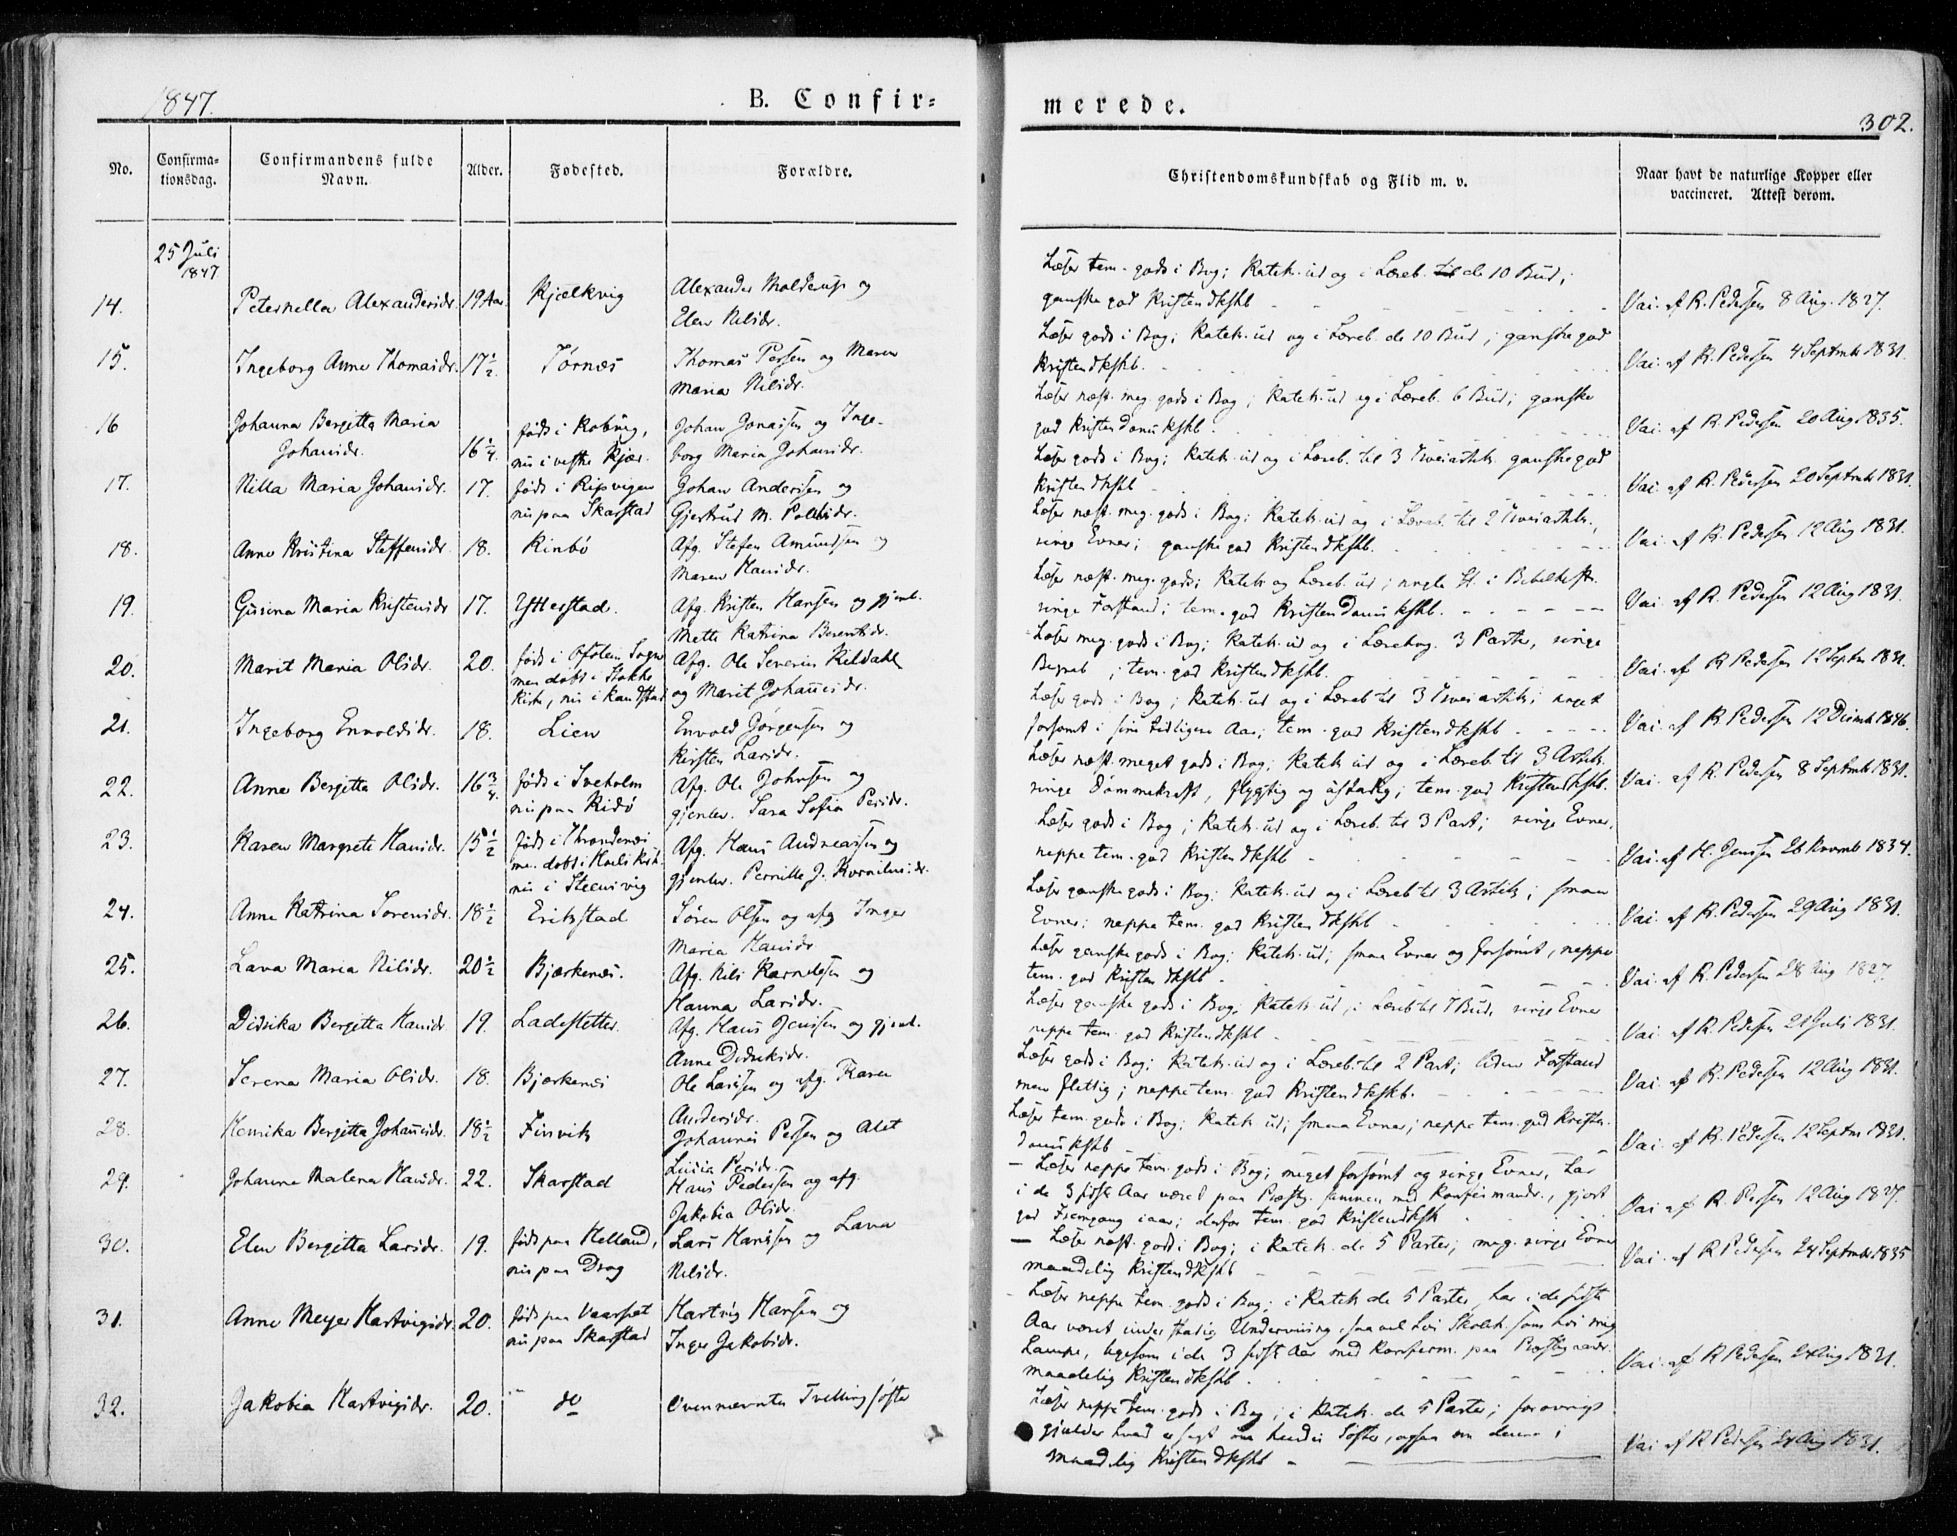 1847.
B. Confir=
merede.
302.
No.
Confirma-
tionsdag.
Confirmandens fulde
Navn.
Alder.
Fødested.
Forældre.
Christendomskundskab og Flid m. v.
Naar havt de naturlige Kopper eller
vaccineret. Attest derom.
25 Juli
1847
14. Peternella Alexandersdr. 19 Aar. Kjælkvig
Alexander Molderup og
Elen Nilsdr.
Læser tem. godt i Bog; Katek. ud og i Læreb. til de 10 Bud;
ganske god Kristendkskb.
Vai. af R. Pedersen 8 Aug. 1827.
15. Ingeborg Anne Thomasdr. 17½. Tørnæs
Thomas Persen og Maren
Maria Nilsdr.
Læser godt i Bog; Katek. ud og i Læreb. de 10 Bud; ganske god
Kristendkskb.
Vai. af R. Pedersen 4 Septmb 1831.
16 Johanna Bergitta Maria
Johansdr. 16¼.
født i Kobvig,
nu i vestre Kjær.
Johan Jonassen og Inge-
borg Maria Johansdr.
Læser næst. meg. godt i Bog; Katek. ud og i Læreb. 6 Bud; ganske
god Kristendomskskb.
Vai. af R. Pedersen 20 Aug 1835.
17. Nilla Maria Johansdr. 17.
født i Ripvigen
nu paa Skarstad
Johan Andersen og
Gjertrud M. Pollsdr.
Læser godt i Bog; Katek. ud og i Læreb. til 3 Troesartik. ganske god
Kristendkskb
Vai. af R. Pedersen 20 Septmb 1831.
18. Anne Kristina Steffensdr. 18. Rinbø
Afg. Stefen Amundsen og
Maren Hansdr.
Læser næst. meg. godt i Bog; Katek. ud og i Læreb. til 2 Troesartik.,
ringe Evner; ganske god Kristendkskb.
Vai. af R. Pedersen 12 Aug 1831.
19. Gurina Maria Kristensdr 17. Ytterstad.
Afg. Kristen Hansen og gjenl.
Mette Katrina Berentsdr.
Læser næst. meg. godt; Katek. og Læreb. ud; nogle St. i Bibelhist.
ringe Forstand; tem. god Kristendomskskb.
Vai. af R. Pedersen 12 Aug 1831.
20. Marit Maria Olsdr. 20.
født i Ofoten Sogn
men døbt i Stokke
Kirke, nu i Kandstad
Afg. Ole Severin Kildahl
og Marit Johansdr.
Læser meg. godt i Bog; Katek. ud og i Lærebog. 3 Parter, ringe
Begreb; tem. god Kristendkskb.
Vai. af R Pedersen 12 Septm 1831.
21. Ingeborg Envoldsdr. 18. Lien
Envold Jørgensen og
Kirsten Larsdr.
Læser godt i Bog; Katek. ud og i Læreb til 3 Troesartik; noget
forsømt i sine tidligere Aar; tem. god Kristendkskb
Vai. af R Pedersen 12 Decemb 1846.
22. Anne Bergitta Olsdr. 16¾.
født i Sveholm
nu paa Ridø
Afg. Ole Johnsen og
gjenlev. Sara Sofia Persdr.
Læser næst. meget godt i Bog; Katek ud og i Læreb til 3 Artik.
ringe Dømmekraft, flygtig og ustadig; tem. god Kristendkskb.
Vai. af R. Pedersen 8 Septmb 1831.
23. Karen Margrete Hansdr. 15½
født i Throndenæs
me. døbt i Hols Kirk.
nu i Steensvig
Afg. Hans Andreassen og
gjenlev. Pernille J. Kornelius dr.
Læser godt i Bog; Katek. ud og i Læreb. til 3 Part; ringe Evner,
neppe tem. god Kristendkskb
Vai. af H. Jenssen 26 Novmb 1834.
24. Anne Katrina Sørensdr. 18½ Erikstad
Søren Olsen og afg Inger
Maria Hansdr
Læser ganske godt i Bog; Katek. ud og i Læreb til 3 Artik; smaa
Evner; neppe tem. god Kristendkskb
Vai. af R. Pedersen 29 Aug 1831.
25. Lava Maria Nilsdr. 20½ Bjærkenæs.
Afg. Nils Karnelsen og
Hanna Larsdr.
Læser ganske godt i Bog; Katek. ud; smaa Evner og forsømt, neppe
tem. god Kristendkskb
Vai. af R. Pedersen 28 Aug 1827.
26. Didrika Bergitta Hansdr 19. Ladestetter.
Afg. Hans Jenssen og gjenl.
Anne Didriksdr.
Læser ganske godt i Bog; Katek. ud, i Læreb til 7 Bud, ringe Evner
neppe tem. god Kristendkskb
Vai. af R. Pedersen 21 Juli 1831.
27. Serena Maria Olsdr. 18. Bjærkenæs
Ole Larssen og afg. Karen
Andersdr.
Læser godt i Bog; Katek. ud og i Læreb. til 2 Part; liden Forstand
men flittig; neppe tem. god Kristendkskb.
Vai. af R. Pedersen 12 Aug 1831.
28. Henrika Bergitta Johansdr. 18½ Finvik
Johannes Persen og Alet
Lucia Persdr.
Læser tem. godt i Bog; Katek ud; smaa Evner; neppe tem. god Kristen-
domskskb
Vai. af R. Pedersen 12 Septm 1831.
29. Johanna Malena Hansdr. 22. Skarstad
Hans Pedersen og afg.
Jakobia Olsdr.
– Læser neppe tem. godt i Bog; meget forsømt og ringe Evner, har
i de 3 sidste Aar været paa Præstg. sammen med Konfirmandr., gjort
god Fremgang iaar; derfor tem. god Kristendkskb
Vai af R. Persen 12 Aug 1827.
30. Elen Bergitta Larsdr. 19.
født paa Helland,
nu paa Drag
Lars Hanssen og Lava
Nilsdr.
– Læser næst. godt i Bog; i Katek. de 5 Parter; meg. ringe Evner
maadelig Kristendkskb
Vai. af R Pedersen 24 Septmb 1835
31. Anne Meyer Hartvigsdr. 20.
født paa Vaarset
nu paa Skarstad
Hartvig Hansen og
Inger Jakobsdr.
– Læser neppe tem. godt i Bog; i Katek de 5 Parter, har i de sidste
Aar været under stadig Underviisning, saavel hos Skoleh. som hos mig
Lampe, ligesom i de 3 sidste Aar med Konfirm. paa Præstegaarden.
maadelig Kristendkskb.
Vai. af R Pedersen 21 Aug 1831.
32. Jakobia Hartvigsdr. 20. do
Ovennævntes Tvillingsøster
Læser neppe tem. godt i Bog; i Katek. de 5 Parter; forøvrigt
gjælder hvad er sagt om hendes Søster, ogsaa om denne;
maadelig Kristendkskb
Vai. af R Pedersen 21 Aug 1831.